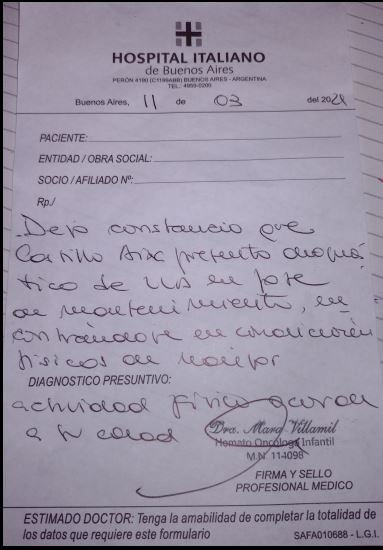 HOSPITAL ITALIANO
de Buenos Aires
PERÓN 4190 (C1199ABB) BUENOS AIRES - ARGENTINA
TEL.: 4959-0200
Buenos Aires, 11 de 03 del 2021
PACIENTE:
ENTIDAD / OBRA SOCIAL:
SOCIO / AFILIADO Nº:
Rp./
Dejo constancia que
Castillo presenta diagnós
tico de en fase
de mantenimiento, en
contrándose en condiciones
físicas de
DIAGNOSTICO PRESUNTIVO:
actividad física acorde
a su edad
Dra. Mara Villamil
Hemato Oncóloga Infantil
M.N. 114098
FIRMA Y SELLO
PROFESIONAL MEDICO
ESTIMADO DOCTOR: Tenga la amabilidad de completar la totalidad de
los datos que requiere este formulario SAFA010688 - L.G.I.